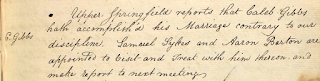 Upper Springfield reports that Caleb Gibbs
C. Gibbs hath accomplish'd his Marriage contrary to our
discipline. Samuel Sykes and Aaron Barton are
appointed to Visit and Treat with him thereon and
make report to next meeting